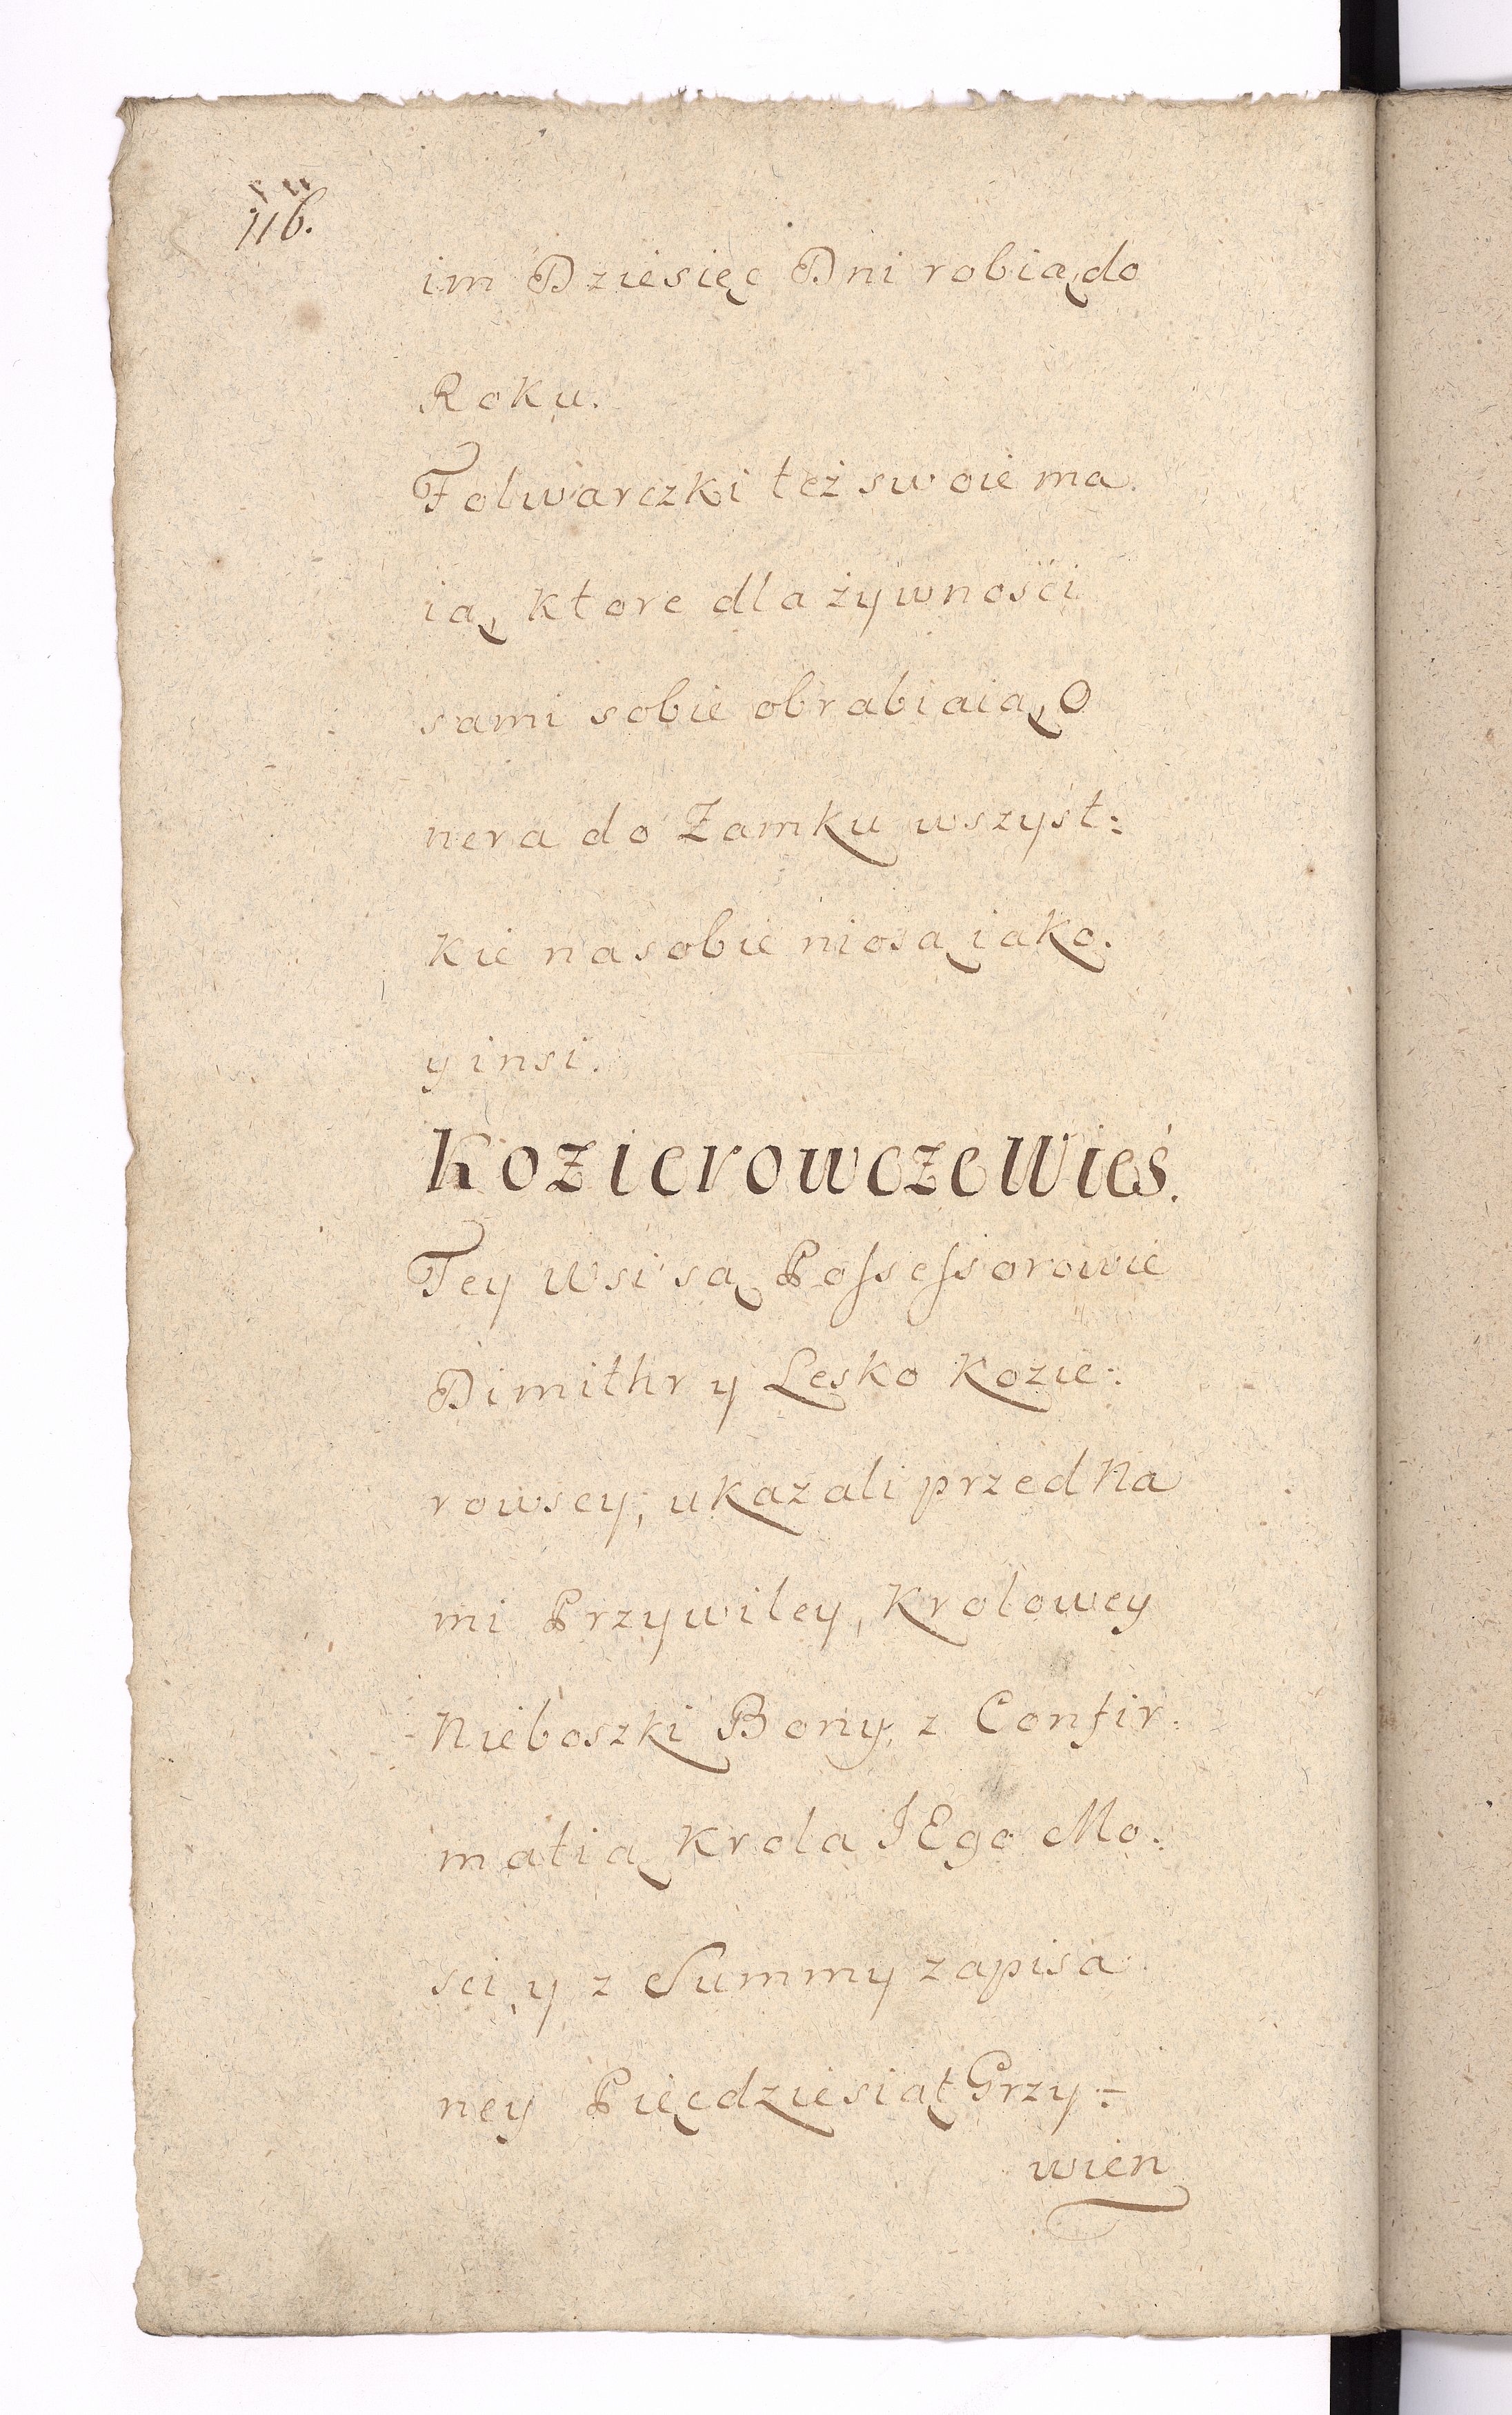 116.
im Dziesięc Dni robią do
Roku.
Folwarczki też swoie ma.
ią, ktore dla żywności
sami sobie obrabiaią, O
nera do Zamku wszyst:
kie na sobie niosą iako.
y insi.
Kozierowcze Wieś.
Tey Wsi są Possessorowie
Dimithr y Lesko Kozie:
rowscy, ukazali przed Na
mi Przywiley, Krolowey
Nieboszki Bony, z Confir:
matią Krola JEgo Mo:
sci, y z Summy zapisa:
ney Pięcdziesiąt Grzy:
wien